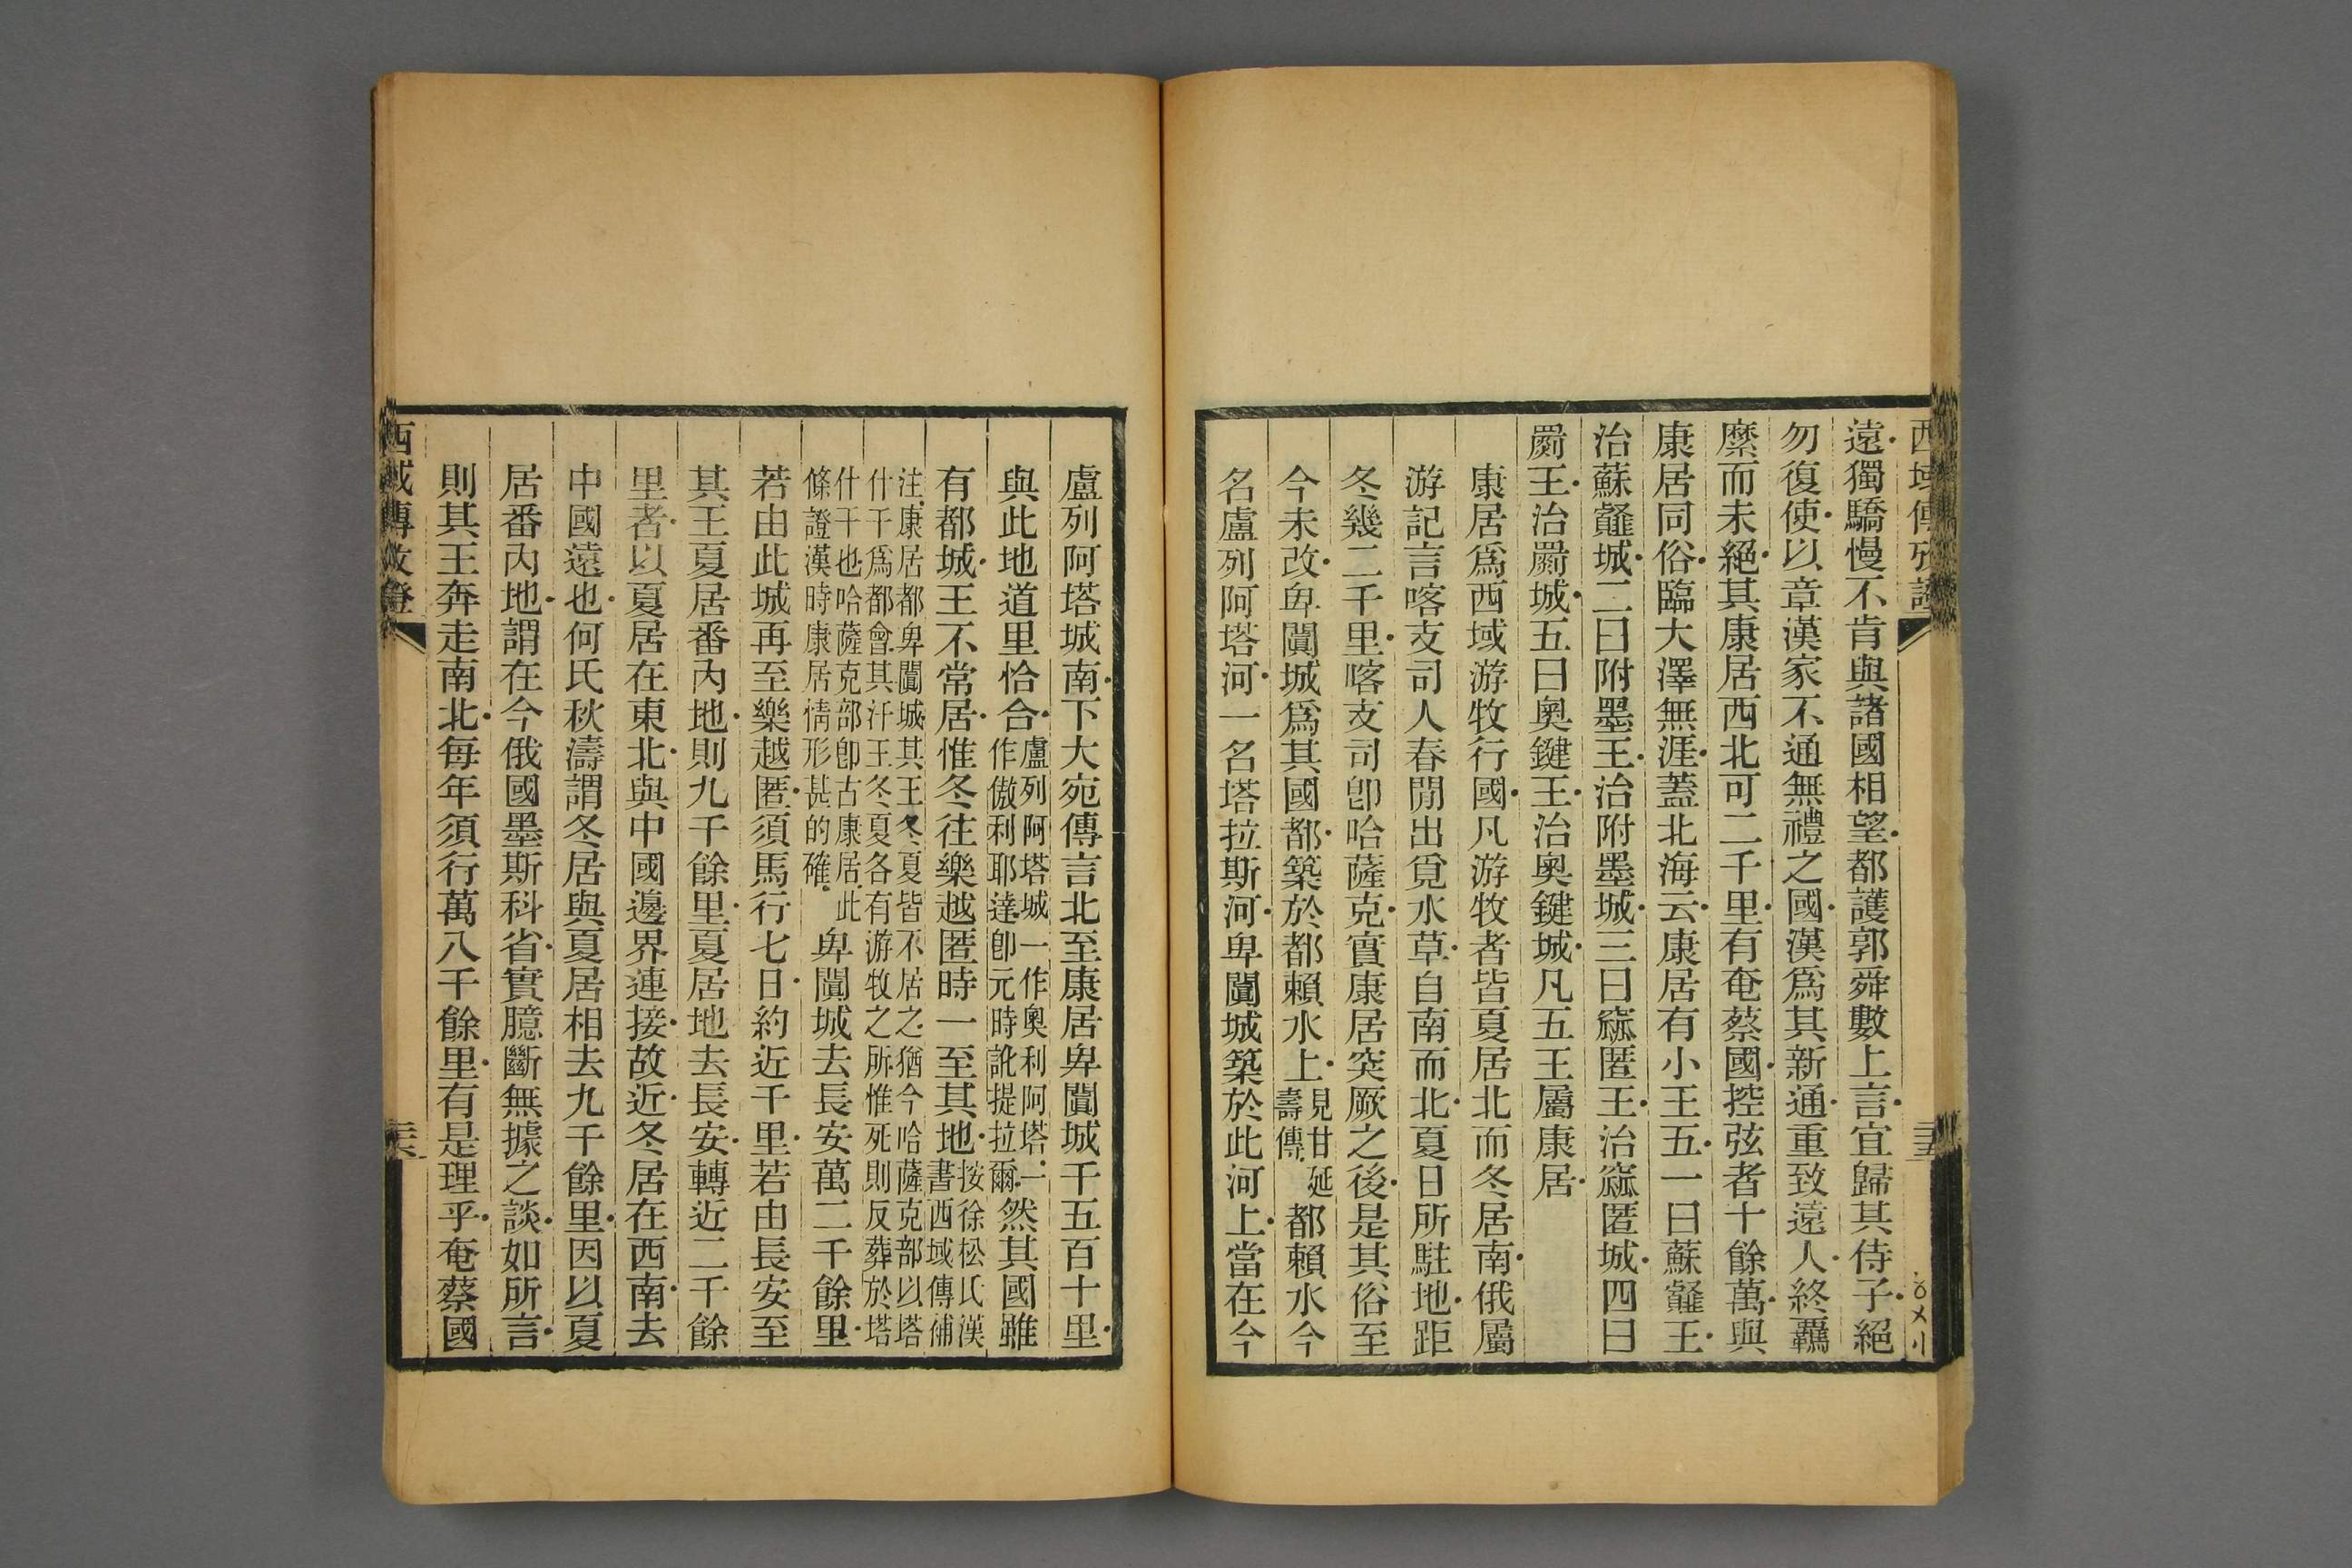 西域傳攷證
遠獨驕慢不肯與諸國相望都護郭舜數上言宜歸其侍子絕
勿復使以章漢家不通無禮之國漢爲其新通重致遠人終羈
縻而未絕其康居西北可二千里有奄蔡國控弦者十餘萬與
康居同俗臨大澤無涯蓋北海云康居有小王五一曰蘇䪥王
治蘇䪥城二曰附墨王治附墨城三曰窳匿王治窳匿城四曰
罽王治罽城五曰奧鍵王治奧鍵城凡五王屬康居
康居爲西域游牧行國凡游牧者皆夏居北而冬居南俄屬
游記言喀支司人春閒出覓水草自南而北夏日所駐地距
冬幾二千里喀支司卽哈薩克實康居突厥之後是其俗至
今未改卑闐城爲其國都築於都賴水上見甘延壽傳都賴水今
名盧列阿塔河一名塔拉斯河卑闐城築於此河上當在今
盧列阿塔城南下大宛傳言北至康居卑闐城千五百十里
與此地道里恰合盧列阿塔城一作奧利阿塔一作傲利耶達卽元時訛提拉爾然其國雖
有都城王不常居惟冬往樂越匿時一至其地按徐松氏漢書西域傳補
注康居都卑闐城其王冬夏皆不居之猶今哈薩克部以塔
什干爲都會其汗王冬夏各有游牧之所惟死則反葬於塔
什干也哈薩克部卽古康居此
條證漢時康居情形甚的確卑闐城去長安萬二千餘里
若由此城再至樂越匿須馬行七日約近千里若由長安至
其王夏居番內地則九千餘里夏居地去長安轉近二千餘
里者以夏居在東北與中國邊界連接故近冬居在西南去
中國遠也何氏秋濤謂冬居與夏居相去九千餘里因以夏
居番內地謂在今俄國墨斯科省實臆斷無據之談如所言
則其王奔走南北每年須行萬八千餘里有是理乎奄蔡國
西域傳攷證